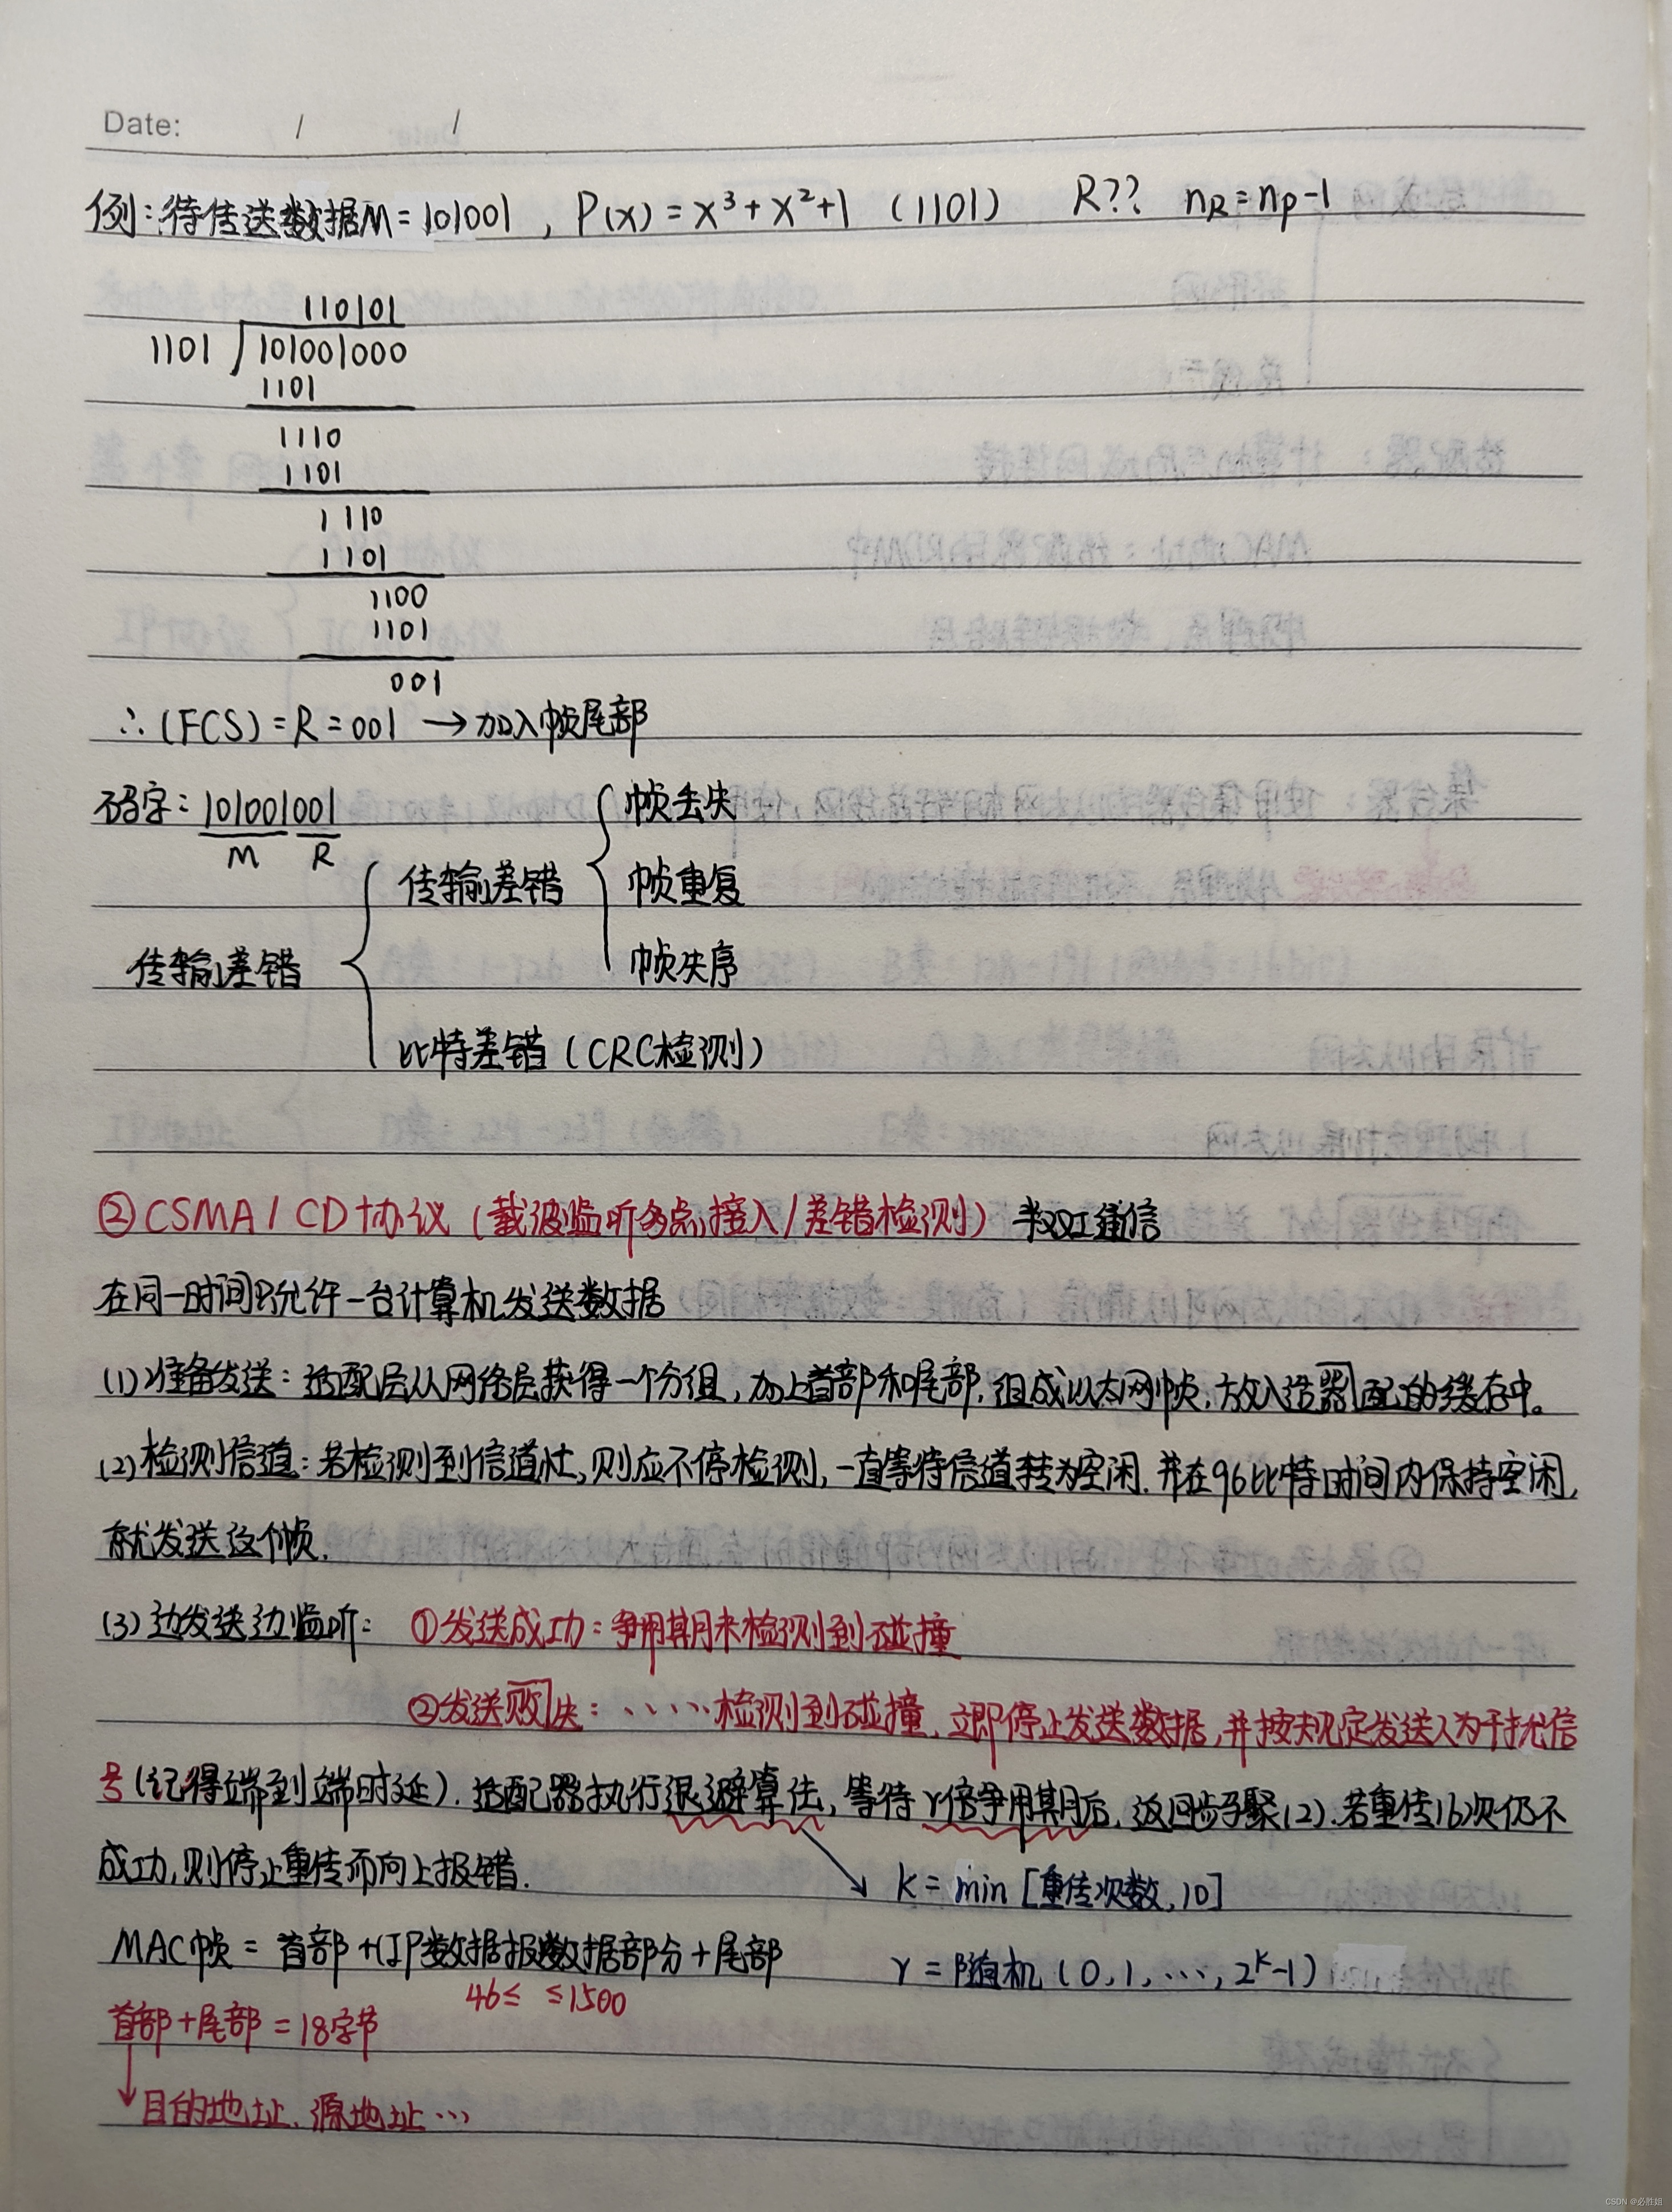 Date: / /
例:待传送数据M=101001 , P(x)=x³+x²+1 (1101) R?? nR=nP-1
110101
1101 101001000
1101
1110
1101
1110
1101
1100
1101
001
∴(FCS)=R=001 →加入帧尾部
码字:101001001
M R
帧丢失
传输差错 帧重复
传输差错 帧失序
比特差错(CRC检测)
②CSMA/CD协议(载波监听多点接入/差错检测) 半双工通信
在同一时间只允许一台计算机发送数据
(1)准备发送:适配层从网络层获得一个分组,加上首部和尾部,组成以太网帧,放入适器配的缓存中。
(2)检测信道:若检测到信道忙,则应不停检测,一直等待信道转为空闲.并在96比特时间内保持空闲,
就发送这个帧.
(3)边发送边监听: ①发送成功:争用期未检测到碰撞
②发送败失:、、、、检测到碰撞,立即停止发送数据,并按规定发送人为干扰信
号(记得端到端时延).适配器执行退避算法,等待r倍争用期后,返回步骤(2).若重传16次仍不
成功,则停止重传而向上报错.
k=min[重传次数,10]
MAC帧=首部+(IP数据报)数据部分+尾部
r=随机(0,1,…,2ᵏ-1)
46≤ ≤1500
首部+尾部=18字节
↓目的地址、源地址…
CSDN @必胜姐